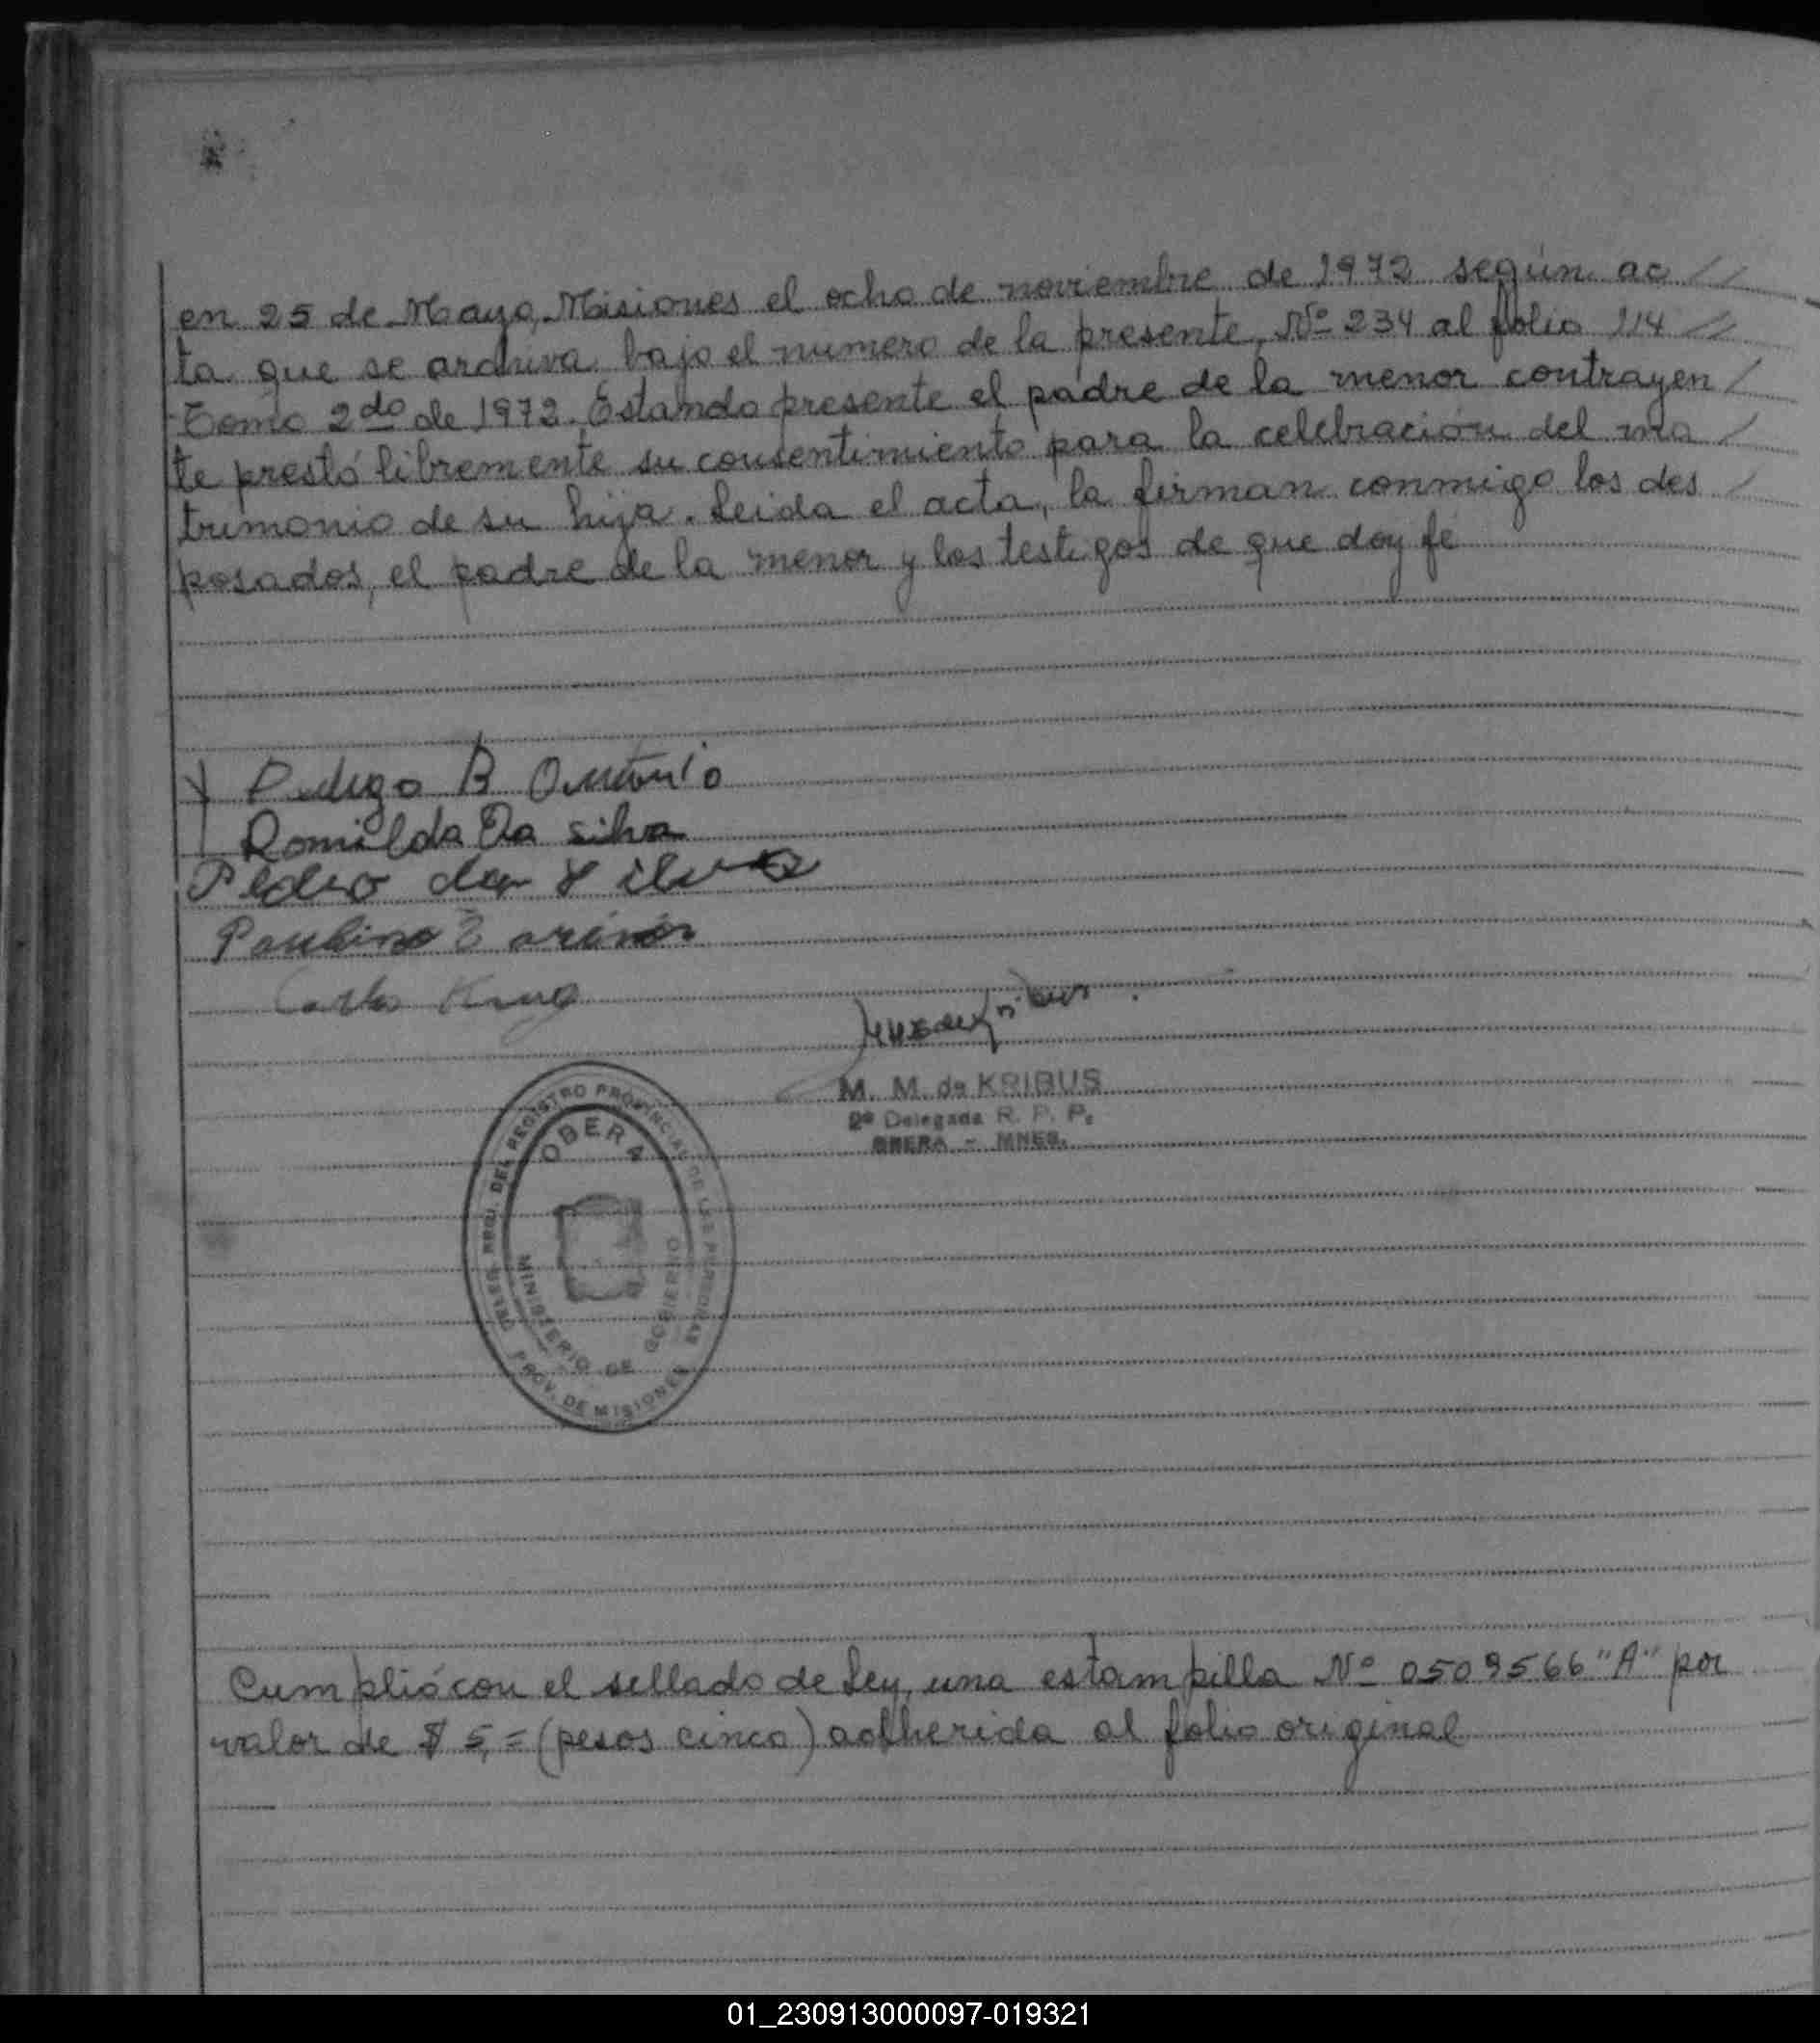 en 25 de Mayo, Misiones el ocho de noviembre de 1972 según ac //
ta que se archiva bajo el numero de la presente, Nº 234 al folio 114 //
Tomo 2do de 1972. Estando presente el padre de la menor contrayen /
te prestó libremente su consentimiento para la celebración del ma /
trimonio de su hija. Leida el acta, la firman conmigo los des /
posados, el padre de la menor y los testigos de que doy fe
B
Romilda Da silva
Pedro da Silva
Paulino
M. M. de KRIBUS
2ª Delegada R. P. P.
OBERA - MNES.
DEL REGISTRO PROVINCIAL DE LAS PERSONAS
OBERA
MINISTERIO DE GOBIERNO
PROV. DE MISIONES
Cumplió con el sellado de Ley, una estampilla Nº 0509566 "A" por
valor de $ 5,= (pesos cinco) adherida al folio original
01_230913000097-019321